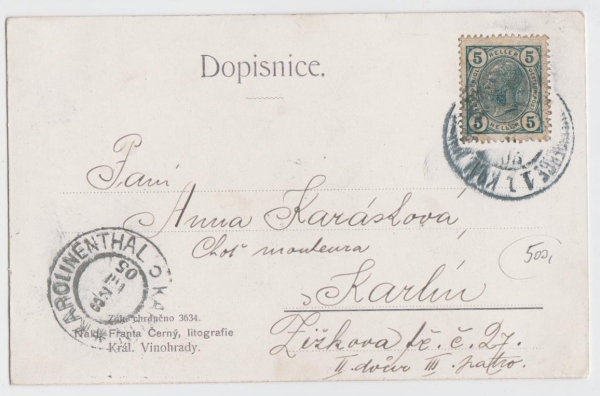 Dopisnice.
5 HELLER 5
5 HELLER 5
Paní
Anna Karásková,
Choť monteura
Karlín
Žižkova tř. č. 27.
II dvůr III. patro.
500,
KAROLINENTHAL
05
Zák. chráněno 3634.
Nakl. Franta Černý, litografie
Král. Vinohrady.